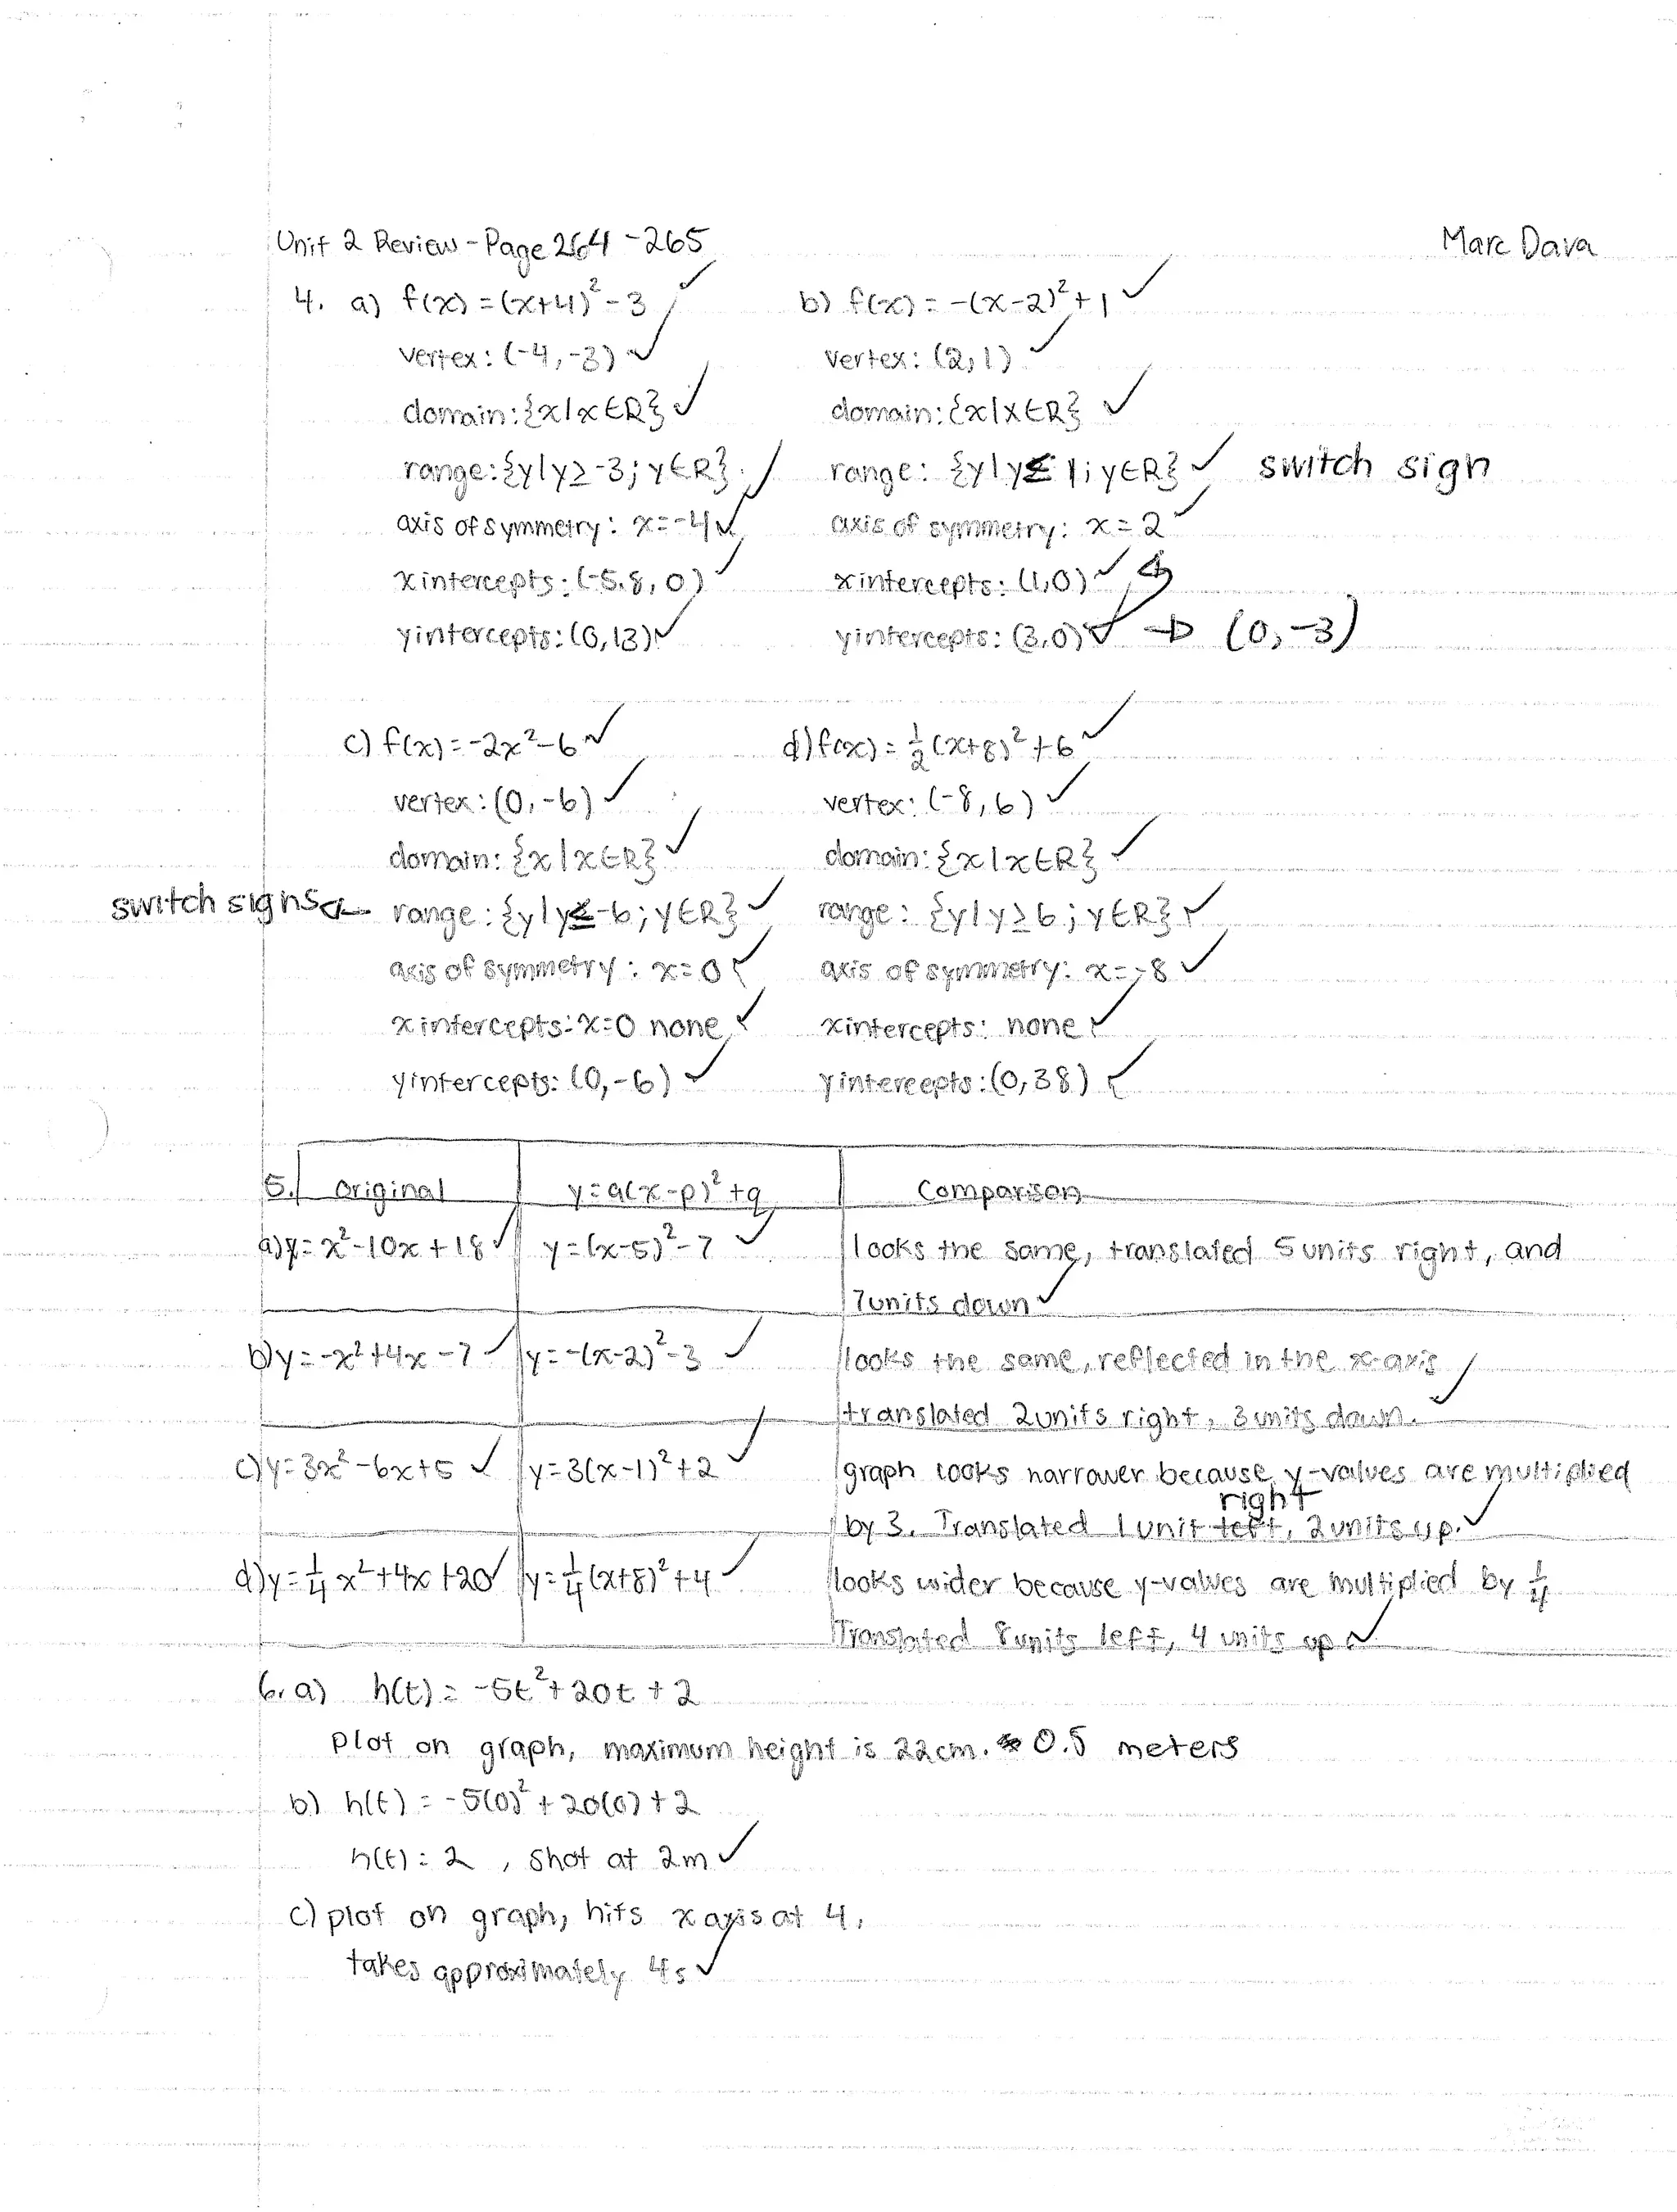 Unit 2 Review - Page 264 - 265
Marc Dava
4. a) f(x) = (x+4)² - 3
vertex: (-4, -3)
domain: {x|x∈R}
range: {y|y≥-3; y∈R}
axis of symmetry: x=-4
x intercepts: (-5.8, 0)
y intercepts: (0,13)
b) f(x) = -(x-2)² + 1
vertex: (2, 1)
domain: {x|x∈R}
range: {y|y≤ 1; y∈R} switch sign
axis of symmetry: x = 2
x intercepts: (1,0)
y intercepts: (3,0) → (0,-3)
c) f(x) = -2x²-6
vertex: (0, -6)
domain: {x|x∈R}
switch signs ← range: {y|y≤-6; y∈R}
axis of symmetry: x=0
x intercepts: x=0 none
y intercepts: (0,-6)
d) f(x) = ½(x+8)² + 6
vertex: (-8, 6)
domain: {x|x∈R}
range: {y|y≥6; y∈R}
axis of symmetry: x=-8
x intercepts: none
y intercepts: (0, 38)
5. original y=a(x-p)²+q Comparison
a) y= x²-10x+18 y=(x-5)²-7 looks the same, translated 5 units right, and
7 units down
b) y=-x²+4x-7 y=-(x-2)²-3 looks the same, reflected in the x-axis
translated 2 units right, 3 units down.
c) y=3x²-6x+5 y=3(x-1)²+2 graph looks narrower because y-values are multiplied
right
by 3. Translated 1 unit left, 2 units up.
d) y=¼x²+4x+20 y=¼(x+8)²+4 looks wider because y-values are multiplied by ¼
Translated 8 units left, 4 units up
6. a) h(t) = -5t²+20t+2
plot on graph, maximum height is 22cm. 0.5 meters
b) h(t) = -5(0)²+20(0)+2
h(t) = 2, shot at 2m
c) plot on graph, hits x axis at 4,
takes approximately 4s